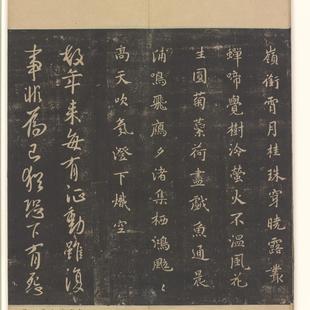 嶺銜霄月桂珠穿曉露叢
蟬啼覺樹冷螢火不溫風花
生圓菊蘂荷盡戲魚通晨
浦鳴飛鴈夕渚集栖鴻颯〻
高天吹氛澄下熾空
數年來每有征動雖復
事非為己猶恐下有怨